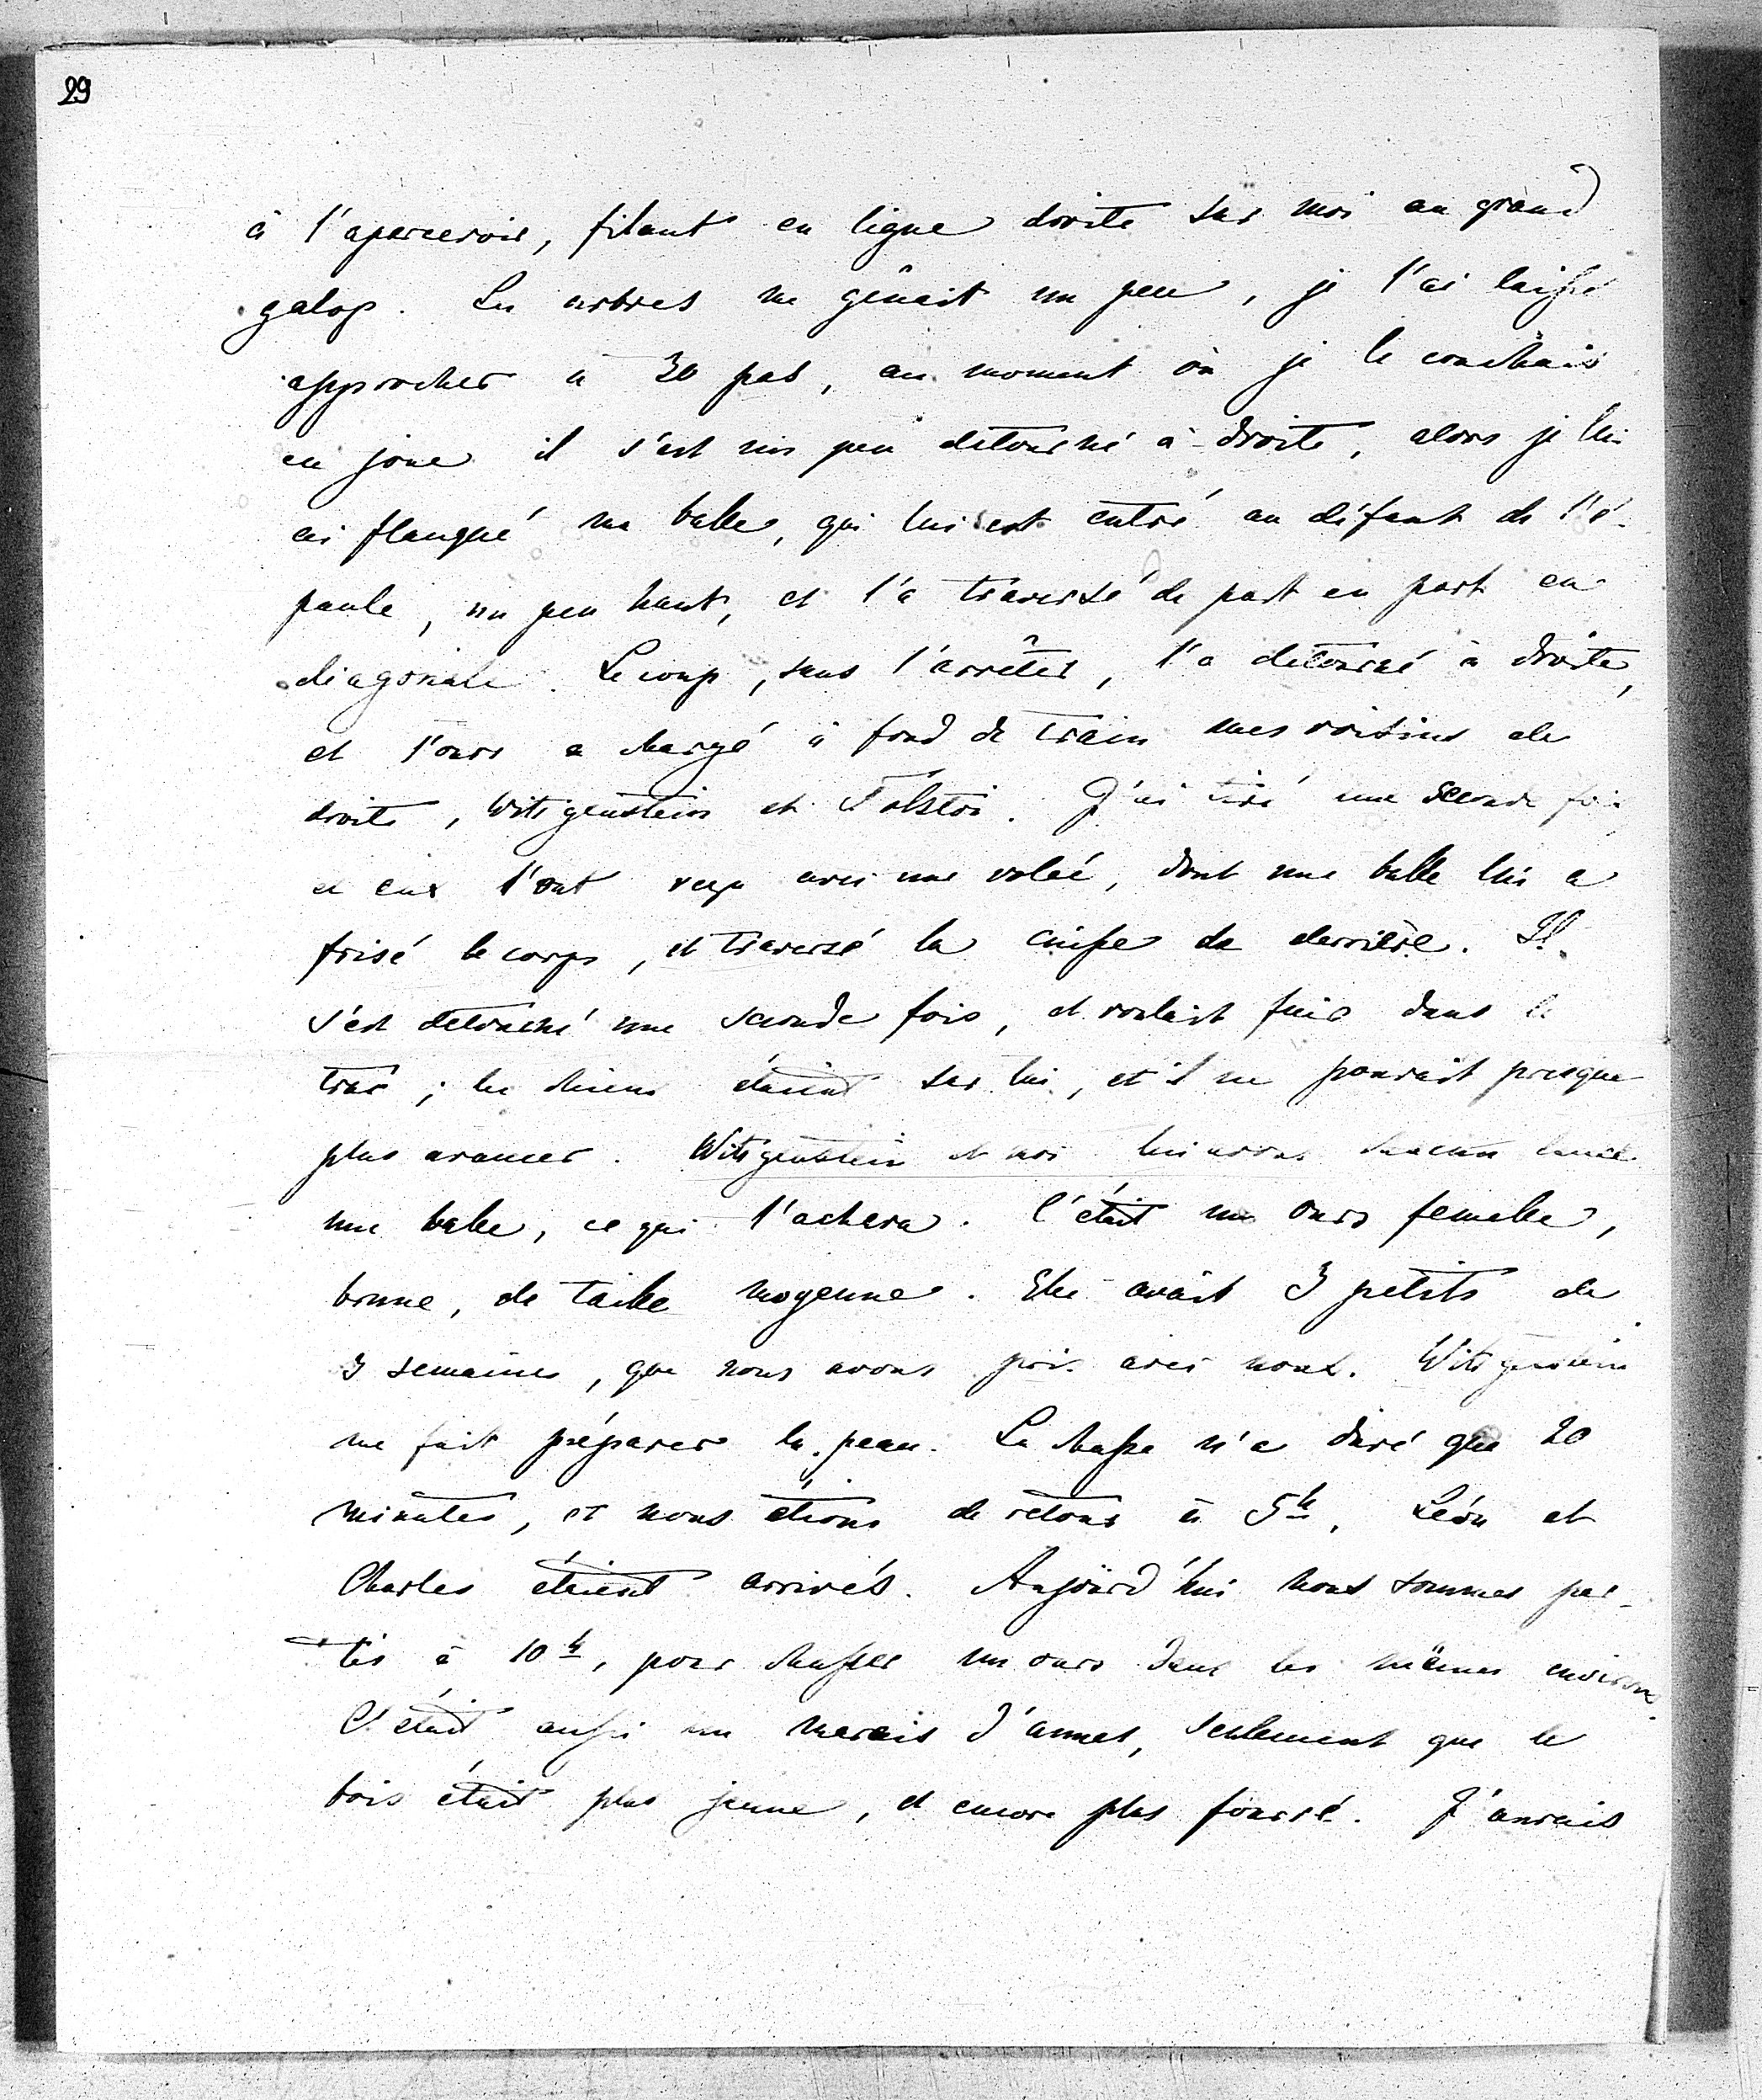 29
à l'apercevoir, filant en ligne droite sur moi au grand
galop. Les arbres me gênait un peu, je l'ai laissé
approcher à 30 pas, au moment où je le couchais
en joue il s'est un peu detourné à droite, alors je lui
ai flanqué ma balle, qui lui est entré au défaut de l'é-
paule, un peu haut, et l'a traversé de part en part en
diagonale. Le coup, sans l'arrêter, l'a detourné à droite,
et l'ours a chargé à fond de train mes voisins de
droite, Witgenstein et Tolstoi. J'ai tiré une seconde fois
et eux l'ont reçu avec une volée, dont une balle lui a
frisé le corps, et traversé la cuisse de derrière. Il
s'est detourné une seconde fois, et voulait fuir dans le
trac; les chiens étaient sur lui, et il ne pouvait presque
plus avancer. Witgenstein et moi lui avons chacun
une balle, ce qui l'acheva. C'était un ours femelle,
brune, de taille moyenne. Elle avait 3 petits de
3 semaines, que nous avons pris avec nous. Witgenstein
me fait préparer la peau. La chasse n'a duré que 20
minutes, et nous étions de retour à 5h. Léon et
Charles étaient arrivés. Aujourd'hui nous sommes par-
tis à 10h, pour chasser un ours dans les mêmes environs.
C'était aussi un marais d'aunes, seulement que le
bois était plus jeune, et encore plus fourré. J'aurais